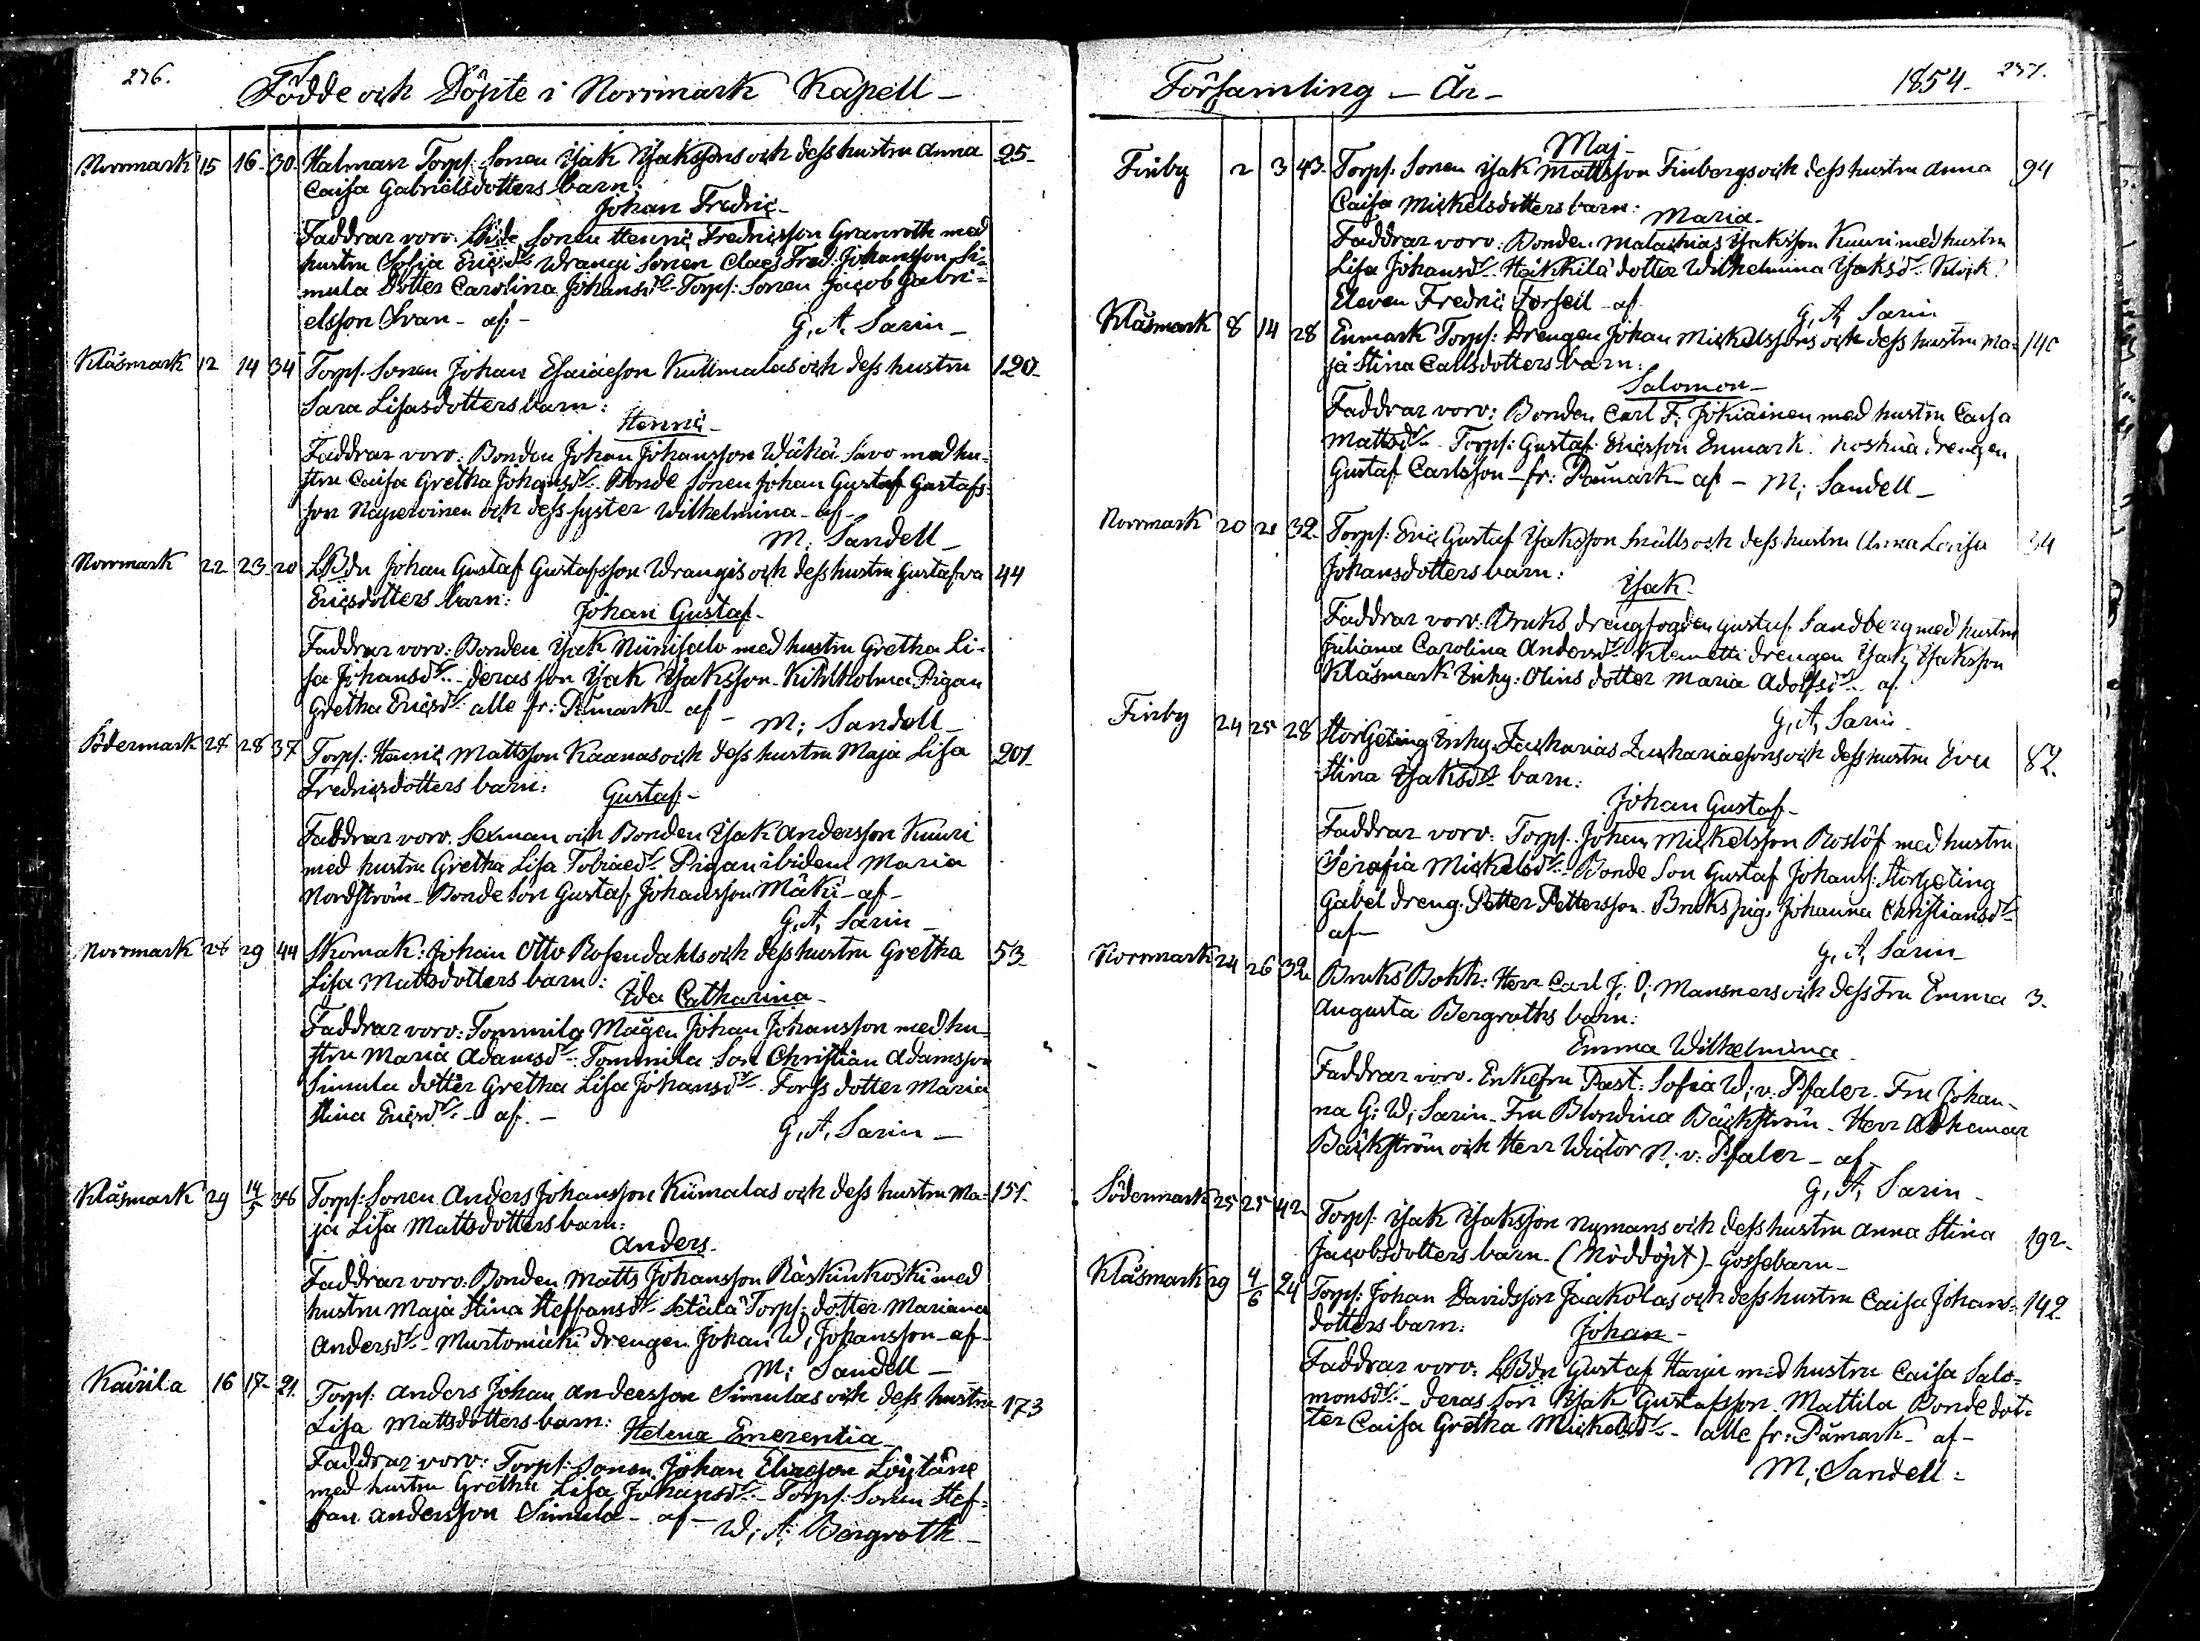 236.
Födde och Döpte i Norrmark Kapell –
Norrmark 15 16. 30. Halmarr Torps: Sonen Isak Isakssons och dess hustru Anna 25.
Caisa Gabrielsdotters barn:
Johan Fredric –
Faddrar voro: Sonen Henric Fredricsson Granroth med
hustru Sofia Ericsdr. Wrangi Sonen Claes Fred. Johansson Si=
mula Dotter Carolina Johansdr. Torps: Sonen Jacob Gabri=
elsson Svan – af –
G. A. Sarin –
Klåsmark 12 14 34 Torps. Sonen Johan Esaiaeson Kullmalas och dess hustru 120.
Sara Lisasdotters barn:
Henric –
Faddrar voro: Bonden Johan Johansson Wähä Savo med hu=
stru Caisa Gretha Johansdr. Bonde Sonen Johan Gustaf Gustafs=
son och dess syster Wilhelmina – af –
M. Sandell –
Norrmark 22 23 20 LBdn Johan Gustaf Gustafsson Wrangis och dess hustru Gustafva 44
Ericsdotters barn:
Johan Gustaf –
Faddrar voro: Bonden Isak Niinisalo med hustru Gretha Li=
sa Johansdr. – deras son Isak Isaksson – Kihlholma Pigan
Gretha Ericsdr. alle fr: Påmark – af –
M. Sandell –
Södermark 27 28 37 Torps: Henric Mattsson Kaanas och dess hustru Maja Lisa 201.
Fredricsdotters barn:
Gustaf –
Faddrar voro: Sexman och Bonden Isak Andersson Kuuri
med hustru Gretha Lisa Tobiaedr. Pigan ibidem Maria
Nordström – Bonde son Gustaf Johansson Mäki – af –
G. A. Sarin –
Norrmark 28 29 44 Skomak: Johan Otto Rosendahls och dess hustru Gretha 53.
Lisa Mattsdotters barn:
Ida Catharina –
Faddrar voro: Tommila Mågen Johan Johansson med hu=
stru Maria Adamsdr. Tommila Son Christian Adamsson
Simula dotter Gretha Lisa Johansdr. Forss dotter Maria
Stina Ericsdr. – af –
G. A. Sarin –
Klåsmark 29 14/5 36 Torps: Sonen Anders Johansson Kiimalas och dess hustru Ma= 151.
ja Lisa Mattsdotters barn:
Anders.
Faddrar voro: Bonden Matts Johansson Räskinkoski med
hustru Maja Stina Steffansdr. Setälä Torps: dotter Mariana
Andersdr. – Murtomäki Drengen Johan W. Johansson – af –
M: Sandell –
Kairila 16 17. 21. Torps: Anders Johan Andersson Simulas och dess hustru 173
Lisa Mattsdotters barn:
Helena Emerentia
Faddrar voro: Torps: Sonen Johan Eliaeson Löytäne
med hustru Gretha Lisa Johansdr. – Torps: Sonen Stef=
fan Andersson Simula – af –
W. A. Bergroth –
Församling – År –
1854 –
237.
Maj –
Finby 2 3 43. Torps: Sonen Isak Mattsson Finbergs och dess hustru Anna 94
Caisa Mickelsdotters barn:
Maria –
Faddrar voro: Bonden Malachias Isaksson Kuuri med hustru
Lisa Johansdr. Heikkilä dotter Wilhelmina Isaksdr. Klock:
Eleven Fredric Forsell – af
G. A. Sarin
Klåsmark 8 14 28 Enmark Torps: Drengen Johan Mickelssons och dess hustru Ma= 140
ja Stina Carlsdotters barn:
Salomon –
Faddrar voro: Bonden Carl F. Jokiainen med hustru Caisa
Mattsdr. Torps: Gustaf Ericsson Enmark. Koskua drengen
Gustaf Carlsson – fr: Påmark – af – M: Sandell –
Norrmark 20 21 32. Torps: Eric Gustaf Isaksson Snälls och dess hustru Anna Lovisa 34
Johansdotters barn:
Isak.
Faddrar voro: Bruks drengfogden Gustaf Sandberg med hustru
Juliana Carolina Andersdr. Klemetti drengen Isak Isaksson
Klåsmark Inhy: Olins dotter Maria Adolfsdr. – af
G. A. Sarin –
Finby 24 25 28 Storgeting Inhy. Zacharias Zachariaesons och dess hustru Eva 82.
Stina Isaksdr. barn:
Johan Gustaf –
Faddrar voro: Torps: Johan Mickelsson Roslöf med hustru
Serafia Mickelsdr. Bonde Son Gustaf Johanss: Storgeting
Gabel dreng. Petter Pettersson. Bruks pig. Johanna Christiansdr.
af –
G. A. Sarin –
Norrmark 24 26 32. Bruks Bokh: Herr Carl J. O. Mansners och dess Fru Emma 3.
Augusta Bergroths barn:
Emma Wilhelmina –
Faddrar voro: Enkefru Past: Sofia W. v. Pfaler. Fru Johan=
na G. W. Sarin – Fru Blondina Bäckström – Herr Adhemar
Bäckström och Herr Wictor N. v. Pfaler – af –
G. A. Sarin –
Södermark 25 25 42. Torps: Isak Isaksson Nymans och dess hustru Anna Stina 192.
Jacobsdotters barn. (Nöddöpt) – Gossebarn –
Klåsmark 29 4/6 24 Torps: Johan Davidsson Jaakolas och dess hustru Caisa Johans= 142
dotters barn:
Johan –
Faddrar voro: LBdn Gustaf Harju med hustru Caisa Salo=
monsdr. – deras Son Isak Gustafsson. Mattila Bonde dot=
ter Caisa Gretha Mickelsdr. – alle fr: Påmark – af –
M. Sandell =